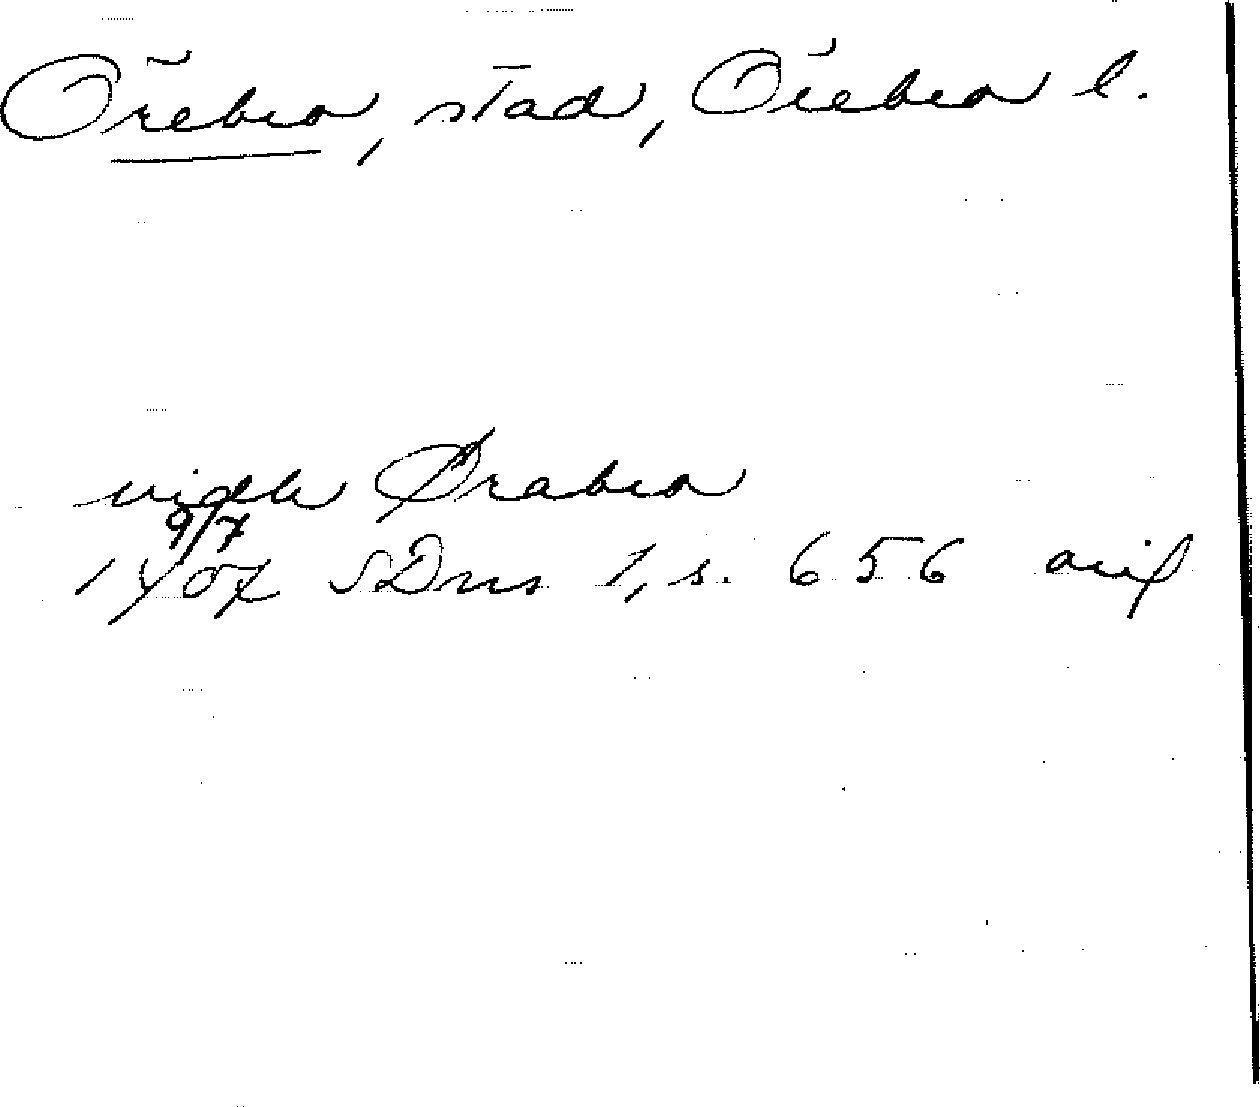 Örebro, stad, Örebro l.
vidh Ørabro
9/7
1407 SDns 1, s. 656 avf